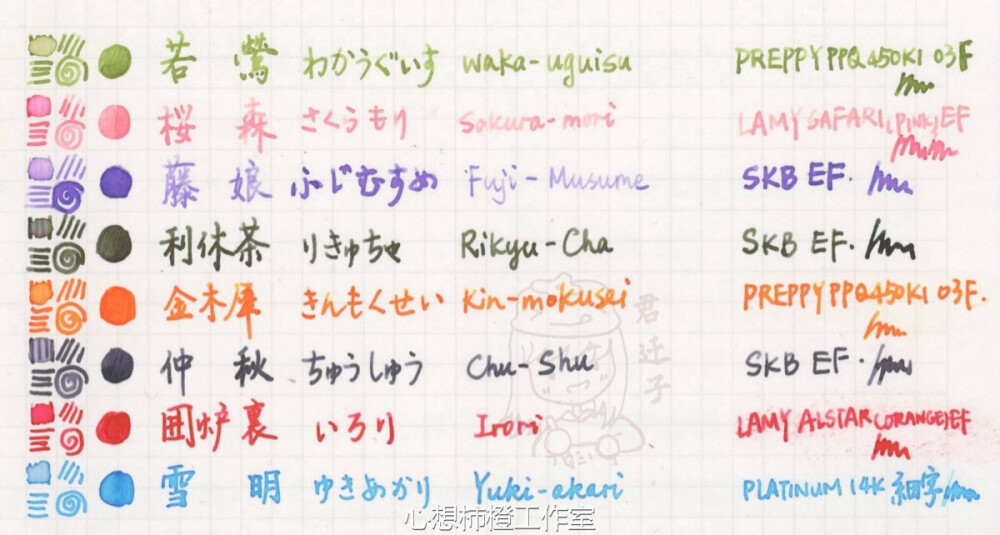 若鶯 わかうぐいす waka-uguisu PREPPY PPQ450KI 03F
桜森 さくらもり Sakura-mori LAMY SAFARI (PINK) EF
藤娘 ふじむすめ Fuji-Musume SKB EF.
利休茶 りきゅちゃ Rikyu-Cha SKB EF.
金木犀 きんもくせい Kin-mokusei PREPPY PPQ450KI 03F.
仲秋 ちゅうしゅう Chu-Shu SKB EF.
囲炉裏 いろり Irori LAMY ALSTAR (ORANGE) EF
雪明 ゆきあかり Yuki-akari PLATINUM 14K 細字
君迁子
心想柿橙工作室